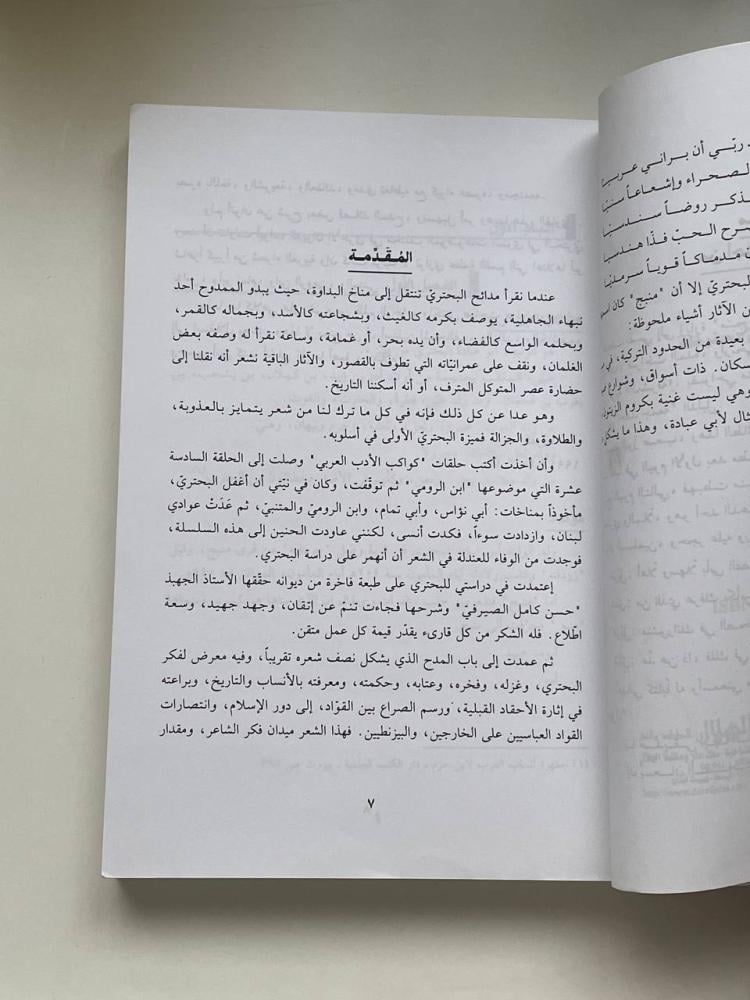 ربّي أن يراني عربيـ
لصحراء وإشعاعاً سنيّـ
ذكـر روضاً سندسيّـا
ـرح الحبّ فذّا هندسيـ
مدماكـاً قويـاً سرمديّـ
لبحتريّ إلا أن "منبج" كان
ن الآثار أشياء ملحوظة:
بعيدة من الحدود التركية، في
سكان. ذات أسواق، وشوارع
وهي ليست غنية بكروم الزيتون
ثال لأبي عبادة، وهذا ما يشكل
المُقَدَّمة
عندما نقرأ مدائح البحتريّ تنتقل إلى مناخ البداوة، حيث يبدو الممدوح أحد
نبهاء الجاهلية، يوصف بكرمه كالغيث، وبشجاعته كالأسد، وبجماله كالقمر،
وبحلمه الواسع كالفضاء، وأن يده بحر، أو غمامة، وساعة نقرأ له وصفه بعض
الغلمان، ونقف على عمرانيّاته التي تطوف بالقصور، والآثار الباقية نشعر أنه نقلنا إلى
حضارة عصر المتوكل المترف، أو أنه أسكننا التاريخ.
وهو عدا عن كل ذلك فإنه في كل ما ترك لنا من شعر يتمايز بالعذوبة،
والطلاوة، والجزالة فميزة البحتريّ الأولى في أسلوبه.
وأن أخذت أكتب حلقات "كواكب الأدب العربي" وصلت إلى الحلقة السادسة
عشرة التي موضوعها "ابن الرومي" ثم توقّفت، وكان في نيّتي أن أغفل البحتري،
مأخوذاً بمناخات: أبي نؤاس، وأبي تمام، وابن الروميّ والمتنبيّ، ثم عَدَتْ عوادي
لبنان، وازدادت سوءاً، فكدت أنسى، لكنني عاودت الحنين إلى هذه السلسلة،
فوجدت من الوفاء للعندلة في الشعر أن أنهمر على دراسة البحتري.
إعتمدت في دراستي للبحتري على طبعة فاخرة من ديوانه حقّقها الأستاذ الجهبذ
"حسن كامل الصيرفيّ" وشرحها فجاءت تنمّ عن إتقان، وجهد جهيد، وسعة
اطّلاع. فله الشكر من كل قارىء يقدّر قيمة كل عمل متقن.
ثم عمدت إلى باب المدح الذي يشكل نصف شعره تقريباً، وفيه معرض لفكر
البحتري، وغزله، وفخره، وعتابه، وحكمته، ومعرفته بالأنساب والتاريخ، وبراعته
في إثارة الأحقاد القبلية، ورسم الصراع بين القوّاد، إلى دور الإسلام، وانتصارات
القواد العباسيين على الخارجين، والبيزنطيين. فهذا الشعر ميدان فكر الشاعر، ومقدار
٧